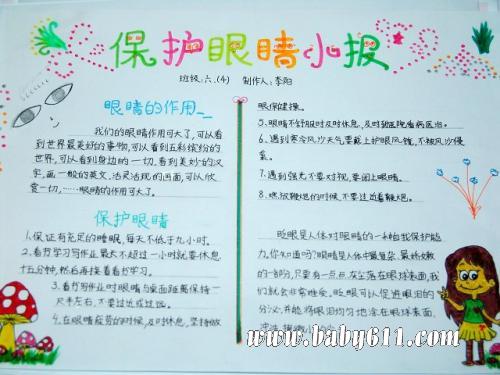 保护眼睛小报
班级:六.(4) 制作人:李阳
眼睛的作用
我们的眼睛作用可大了,可以看
到世界最美好的事物,可以看到五彩缤纷的
世界,可以看到身边的一切,看到美妙的汉
字,画一般的英文,活灵活现的画面,可以欣
赏一切,……眼睛的作用可大了。
保护眼睛
1.保证有充足的睡眠,每天不低于九小时。
2.看书学习写作业最大不超过一小时就要休息
十五分钟,然后再接着看书学习。
3.看书写作业时眼睛与桌面距离保持一
尺半左右,不要过近或过远。
4.在眼睛疲劳的时候,及时休息,坚持做
眼保健操。
5.眼睛不舒服时及时休息,及时到医院看病医治。
6.遇到寒冷风沙天气要戴上护眼风镜,不被风沙侵
袭。
7.遇到强光不要对视,要闭上眼睛。
8.燃放鞭炮的时候,不要过近看鞭炮。
眨眼是人体对眼睛的一种自我保护能
力,你知道吗?眼睛是人体中最复杂、最娇嫩
的一部分,只要有一点点灰尘落在眼球表面,我
们就会非常难受。眨眼可以促进眼泪的
分泌,并能将眼泪均匀地涂在眼球表面,
www.baby611.com